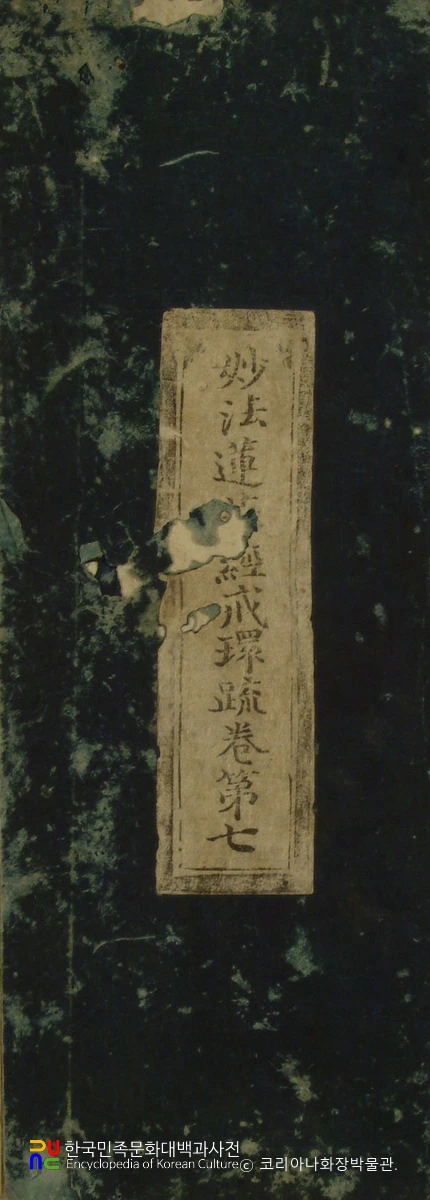 妙法蓮經戒環䟽卷第七
한국민족문화대백과사전
Encyclopedia of Korean Culture
© 코리아나화장박물관.